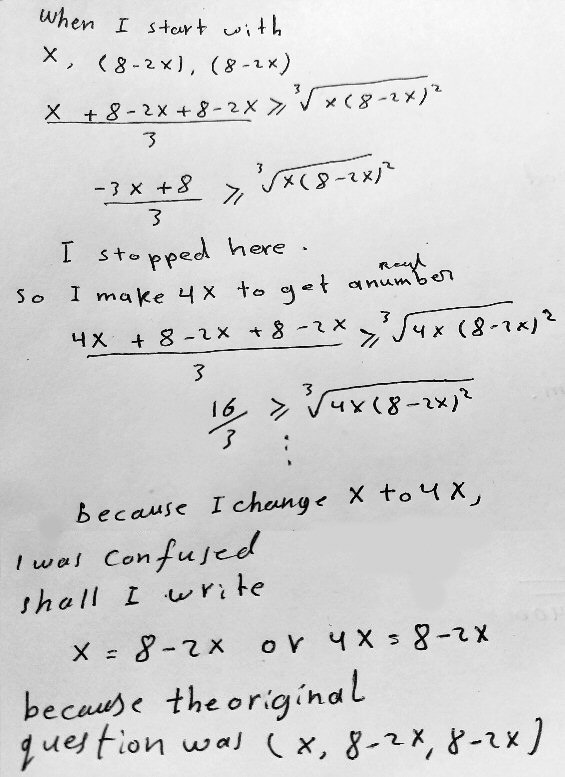 When I start with
x, (8-2x), (8-2x)
x + 8-2x + 8-2x / 3 ≥ ³√x(8-2x)²
-3x + 8 / 3 ≥ ³√x(8-2x)²
I stopped here.
So I make 4x to get a real number
4x + 8-2x + 8-2x / 3 ≥ ³√4x(8-2x)²
16 / 3 ≥ ³√4x(8-2x)²
⋮
Because I change x to 4x,
I was confused
shall I write
x = 8-2x or 4x = 8-2x
because the original
question was (x, 8-2x, 8-2x)